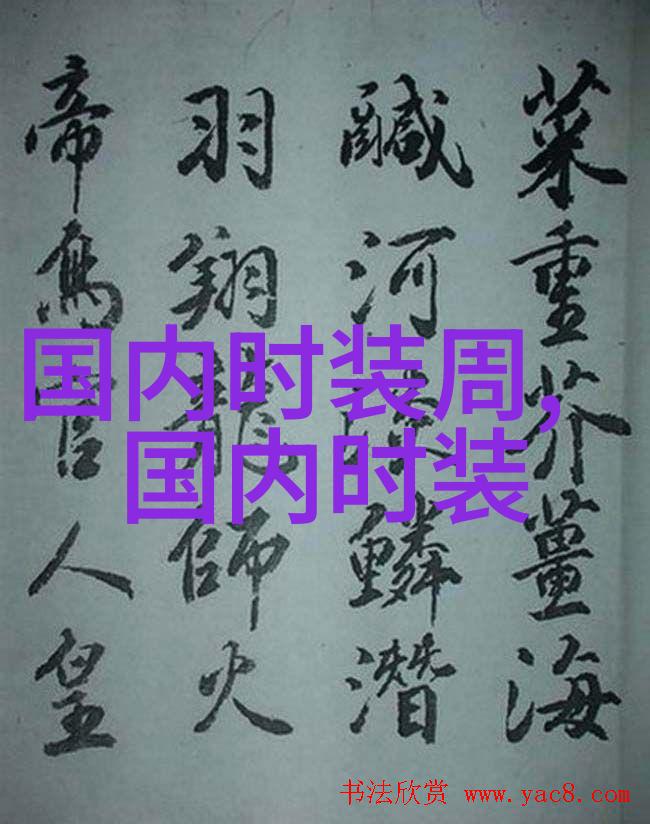 菜重芥薑海
鹹河淡鱗潛
羽翔龍師火
帝鳥官人皇
国内时装周,
国内时装
书法欣赏 www.yac8.com